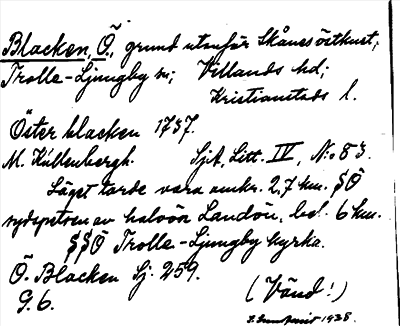 Blacken, Ö., grund utanför Skånes östkust,
Trolle-Ljungby sn; Villands hd;
Kristianstads l.
Öster blacken 1737.
M. Kullenbergh. Sjk, Litt. IV, No 83.
Läget torde vara omkr. 2,7 km. SÖ
sydspetsen av halvön Landön, bel. 6 km.
SSÖ Trolle-Ljungby kyrka.
Ö. Blacken Sj. 259.
G. 6. (Vänd!)
1938